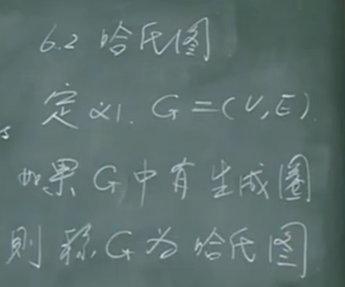 6.2 哈氏图
定义1. G=(V,E).
如果G中有生成圈
则称G为哈氏图